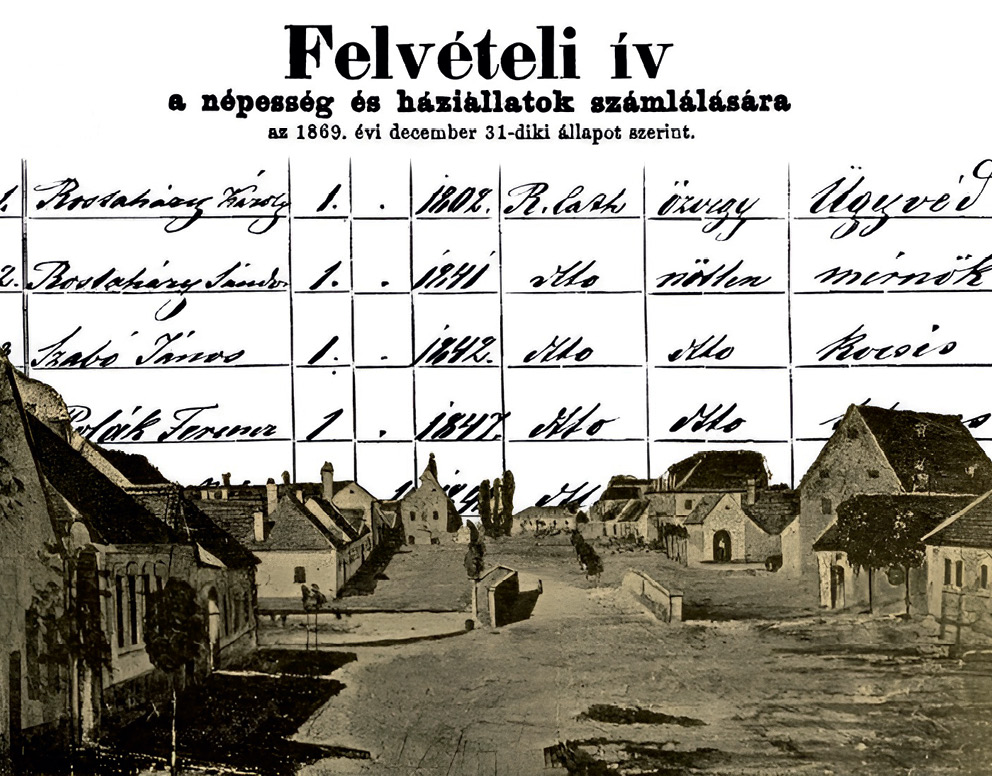 Felvételi ív
a népesség és háziállatok számlálására
az 1869. évi december 31-diki állapot szerint.
1. Rostaházy Károly 1. . 1802. R. Cath özvegy Ügyvéd
2. Rostaházy Sándor 1. . 1841 dtto nőtlen mérnök
3. Szabó János 1. . 1842. dtto dtto kocsis
Polák Ferenc 1 . 1847. dtto dtto